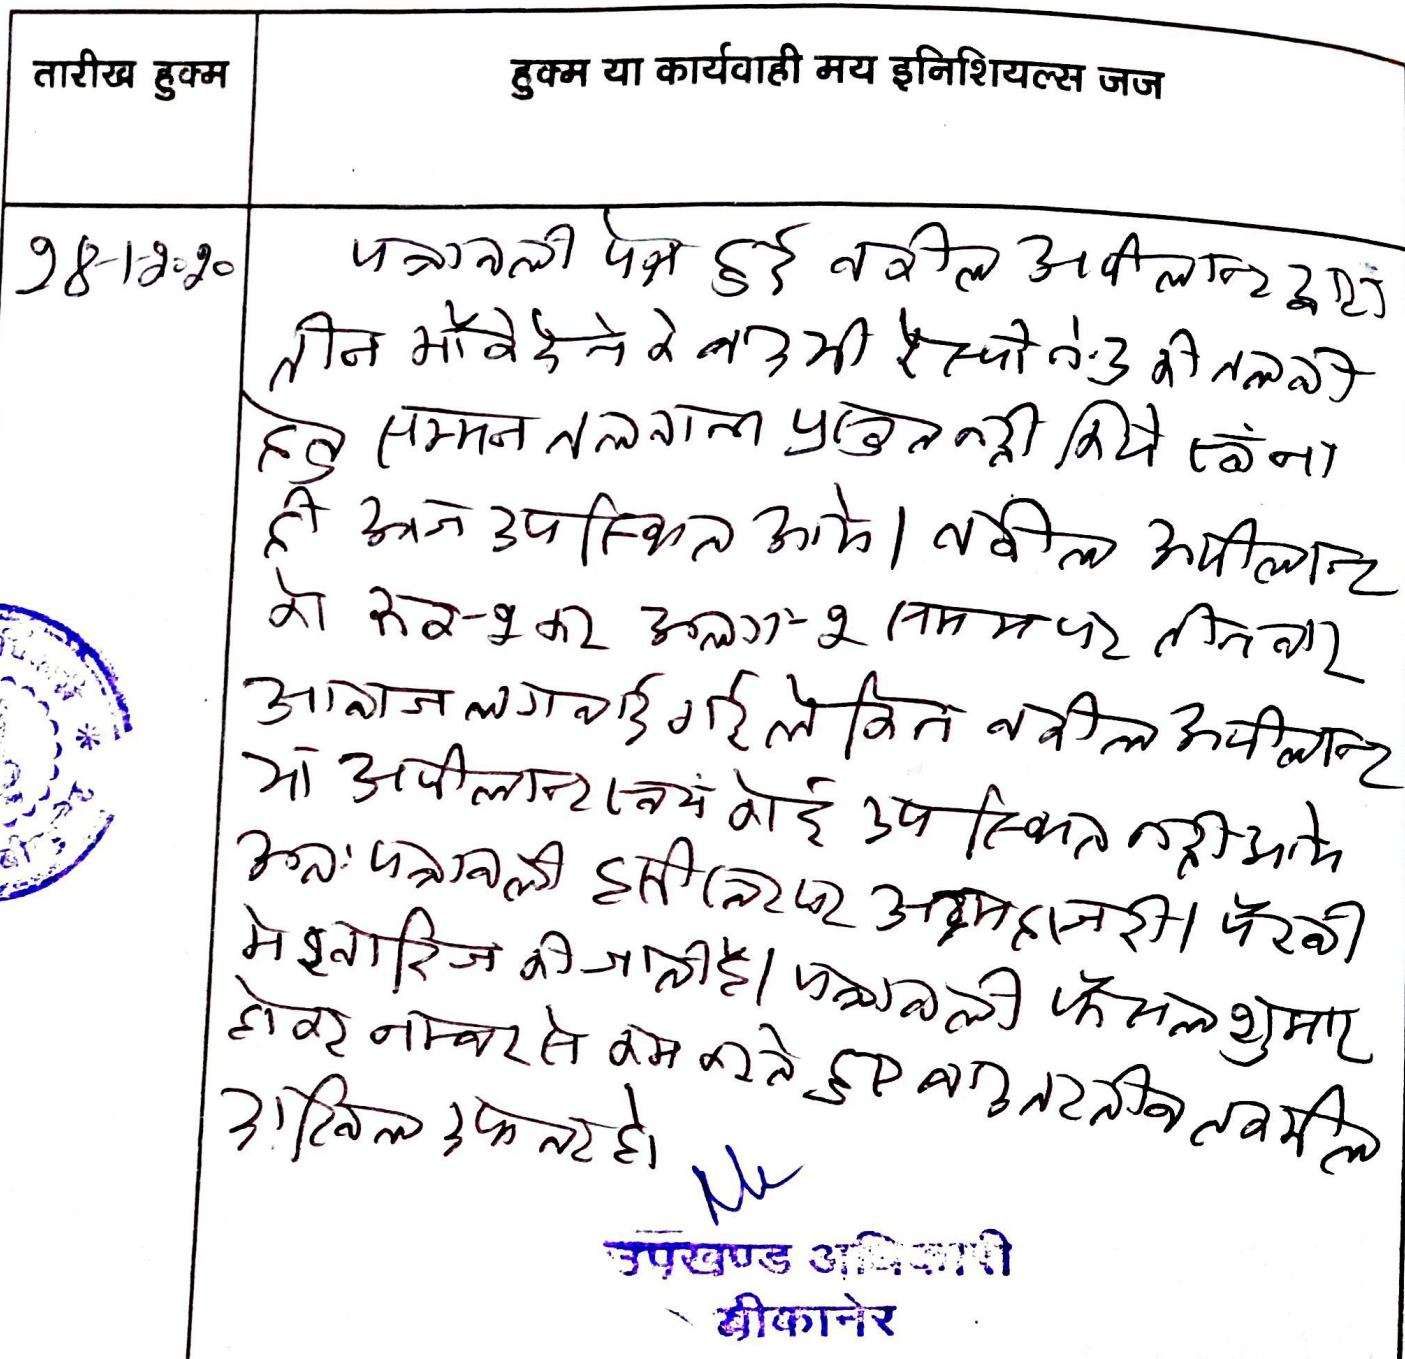 तारीख हुक्म
हुक्म या कार्यवाही मय इनिशियल्स जज
28-1-2020
पत्रावली पेश हुई वकील अपीलान्ट द्वारा
तीन मौके देने के बाद भी रेस्पोडेन्ट की तलबी
हेतु सम्मन तलवाना प्रस्तुत नही किये एवं ना
ही आज उपस्थित आये। वकील अपीलान्ट
को रूक-२ कर अलग-२ समय पर तीन बार
आवाज लगवाई गई लेकिन वकील अपीलान्ट
या अपीलान्ट स्वयं कोई उपस्थित नही आये
अतः पत्रावली इसी स्तर पर अदम हाजरी। पैरवी
मे खारिज की जाती है। पत्रावली फैसल शुमार
होकर नम्बर से कम करते हुए बाद तरतीब तकमील
दाखिल दफ्तर हो।
उपखण्ड अधिकारी
बीकानेर